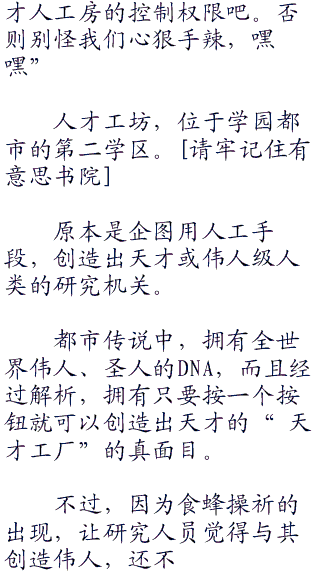 才人工房的控制权限吧。否
则别怪我们心狠手辣，嘿
嘿”
人才工坊，位于学园都
市的第二学区。[请牢记住有
意思书院]
原本是企图用人工手
段，创造出天才或伟人级人
类的研究机关。
都市传说中，拥有全世
界伟人、圣人的DNA，而且经
过解析，拥有只要按一个按
钮就可以创造出天才的“ 天
才工厂”的真面目。
不过，因为食蜂操祈的
出现，让研究人员觉得与其
创造伟人，还不